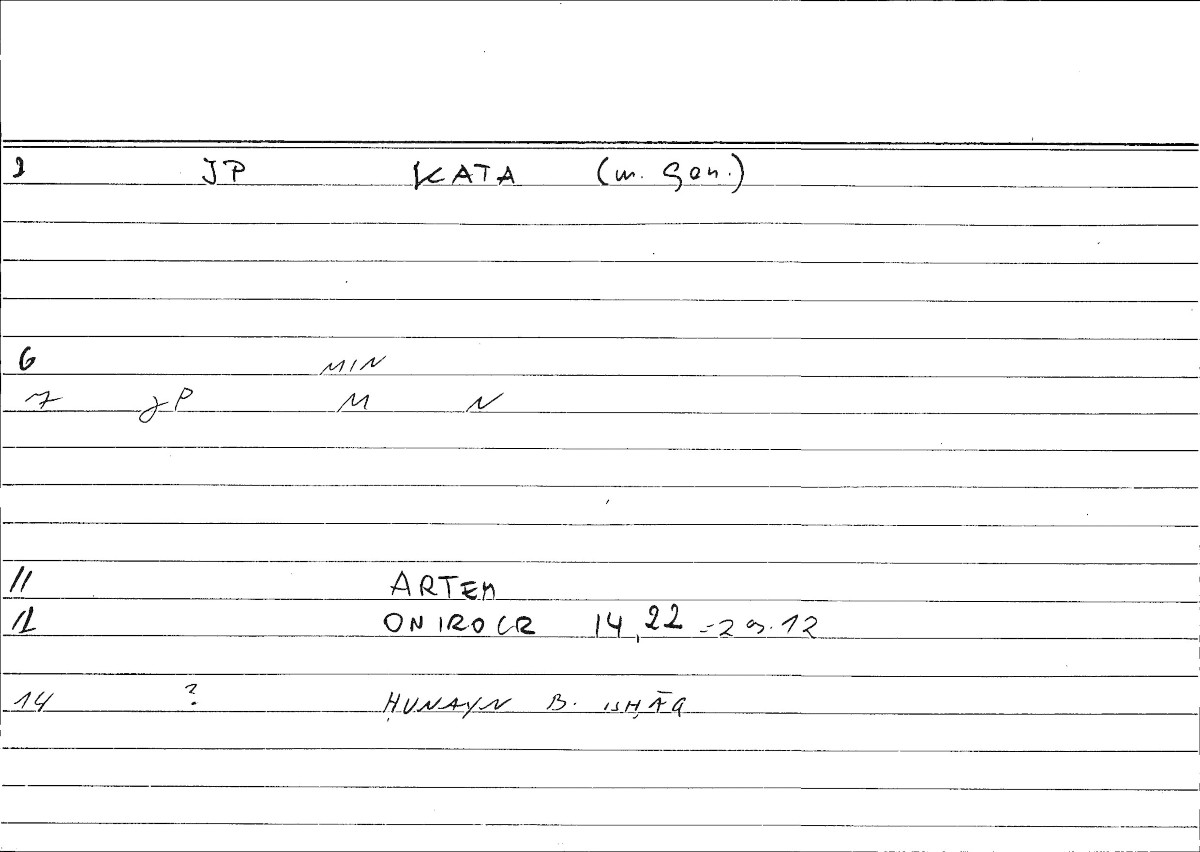 1 JP KATA (m. Gen.)
6 MIN
7 JP M N
11 ARTEM
12 ONIROCR 14,22 = 29.12
14 ? ḤUNAYN B. ISḤĀQ